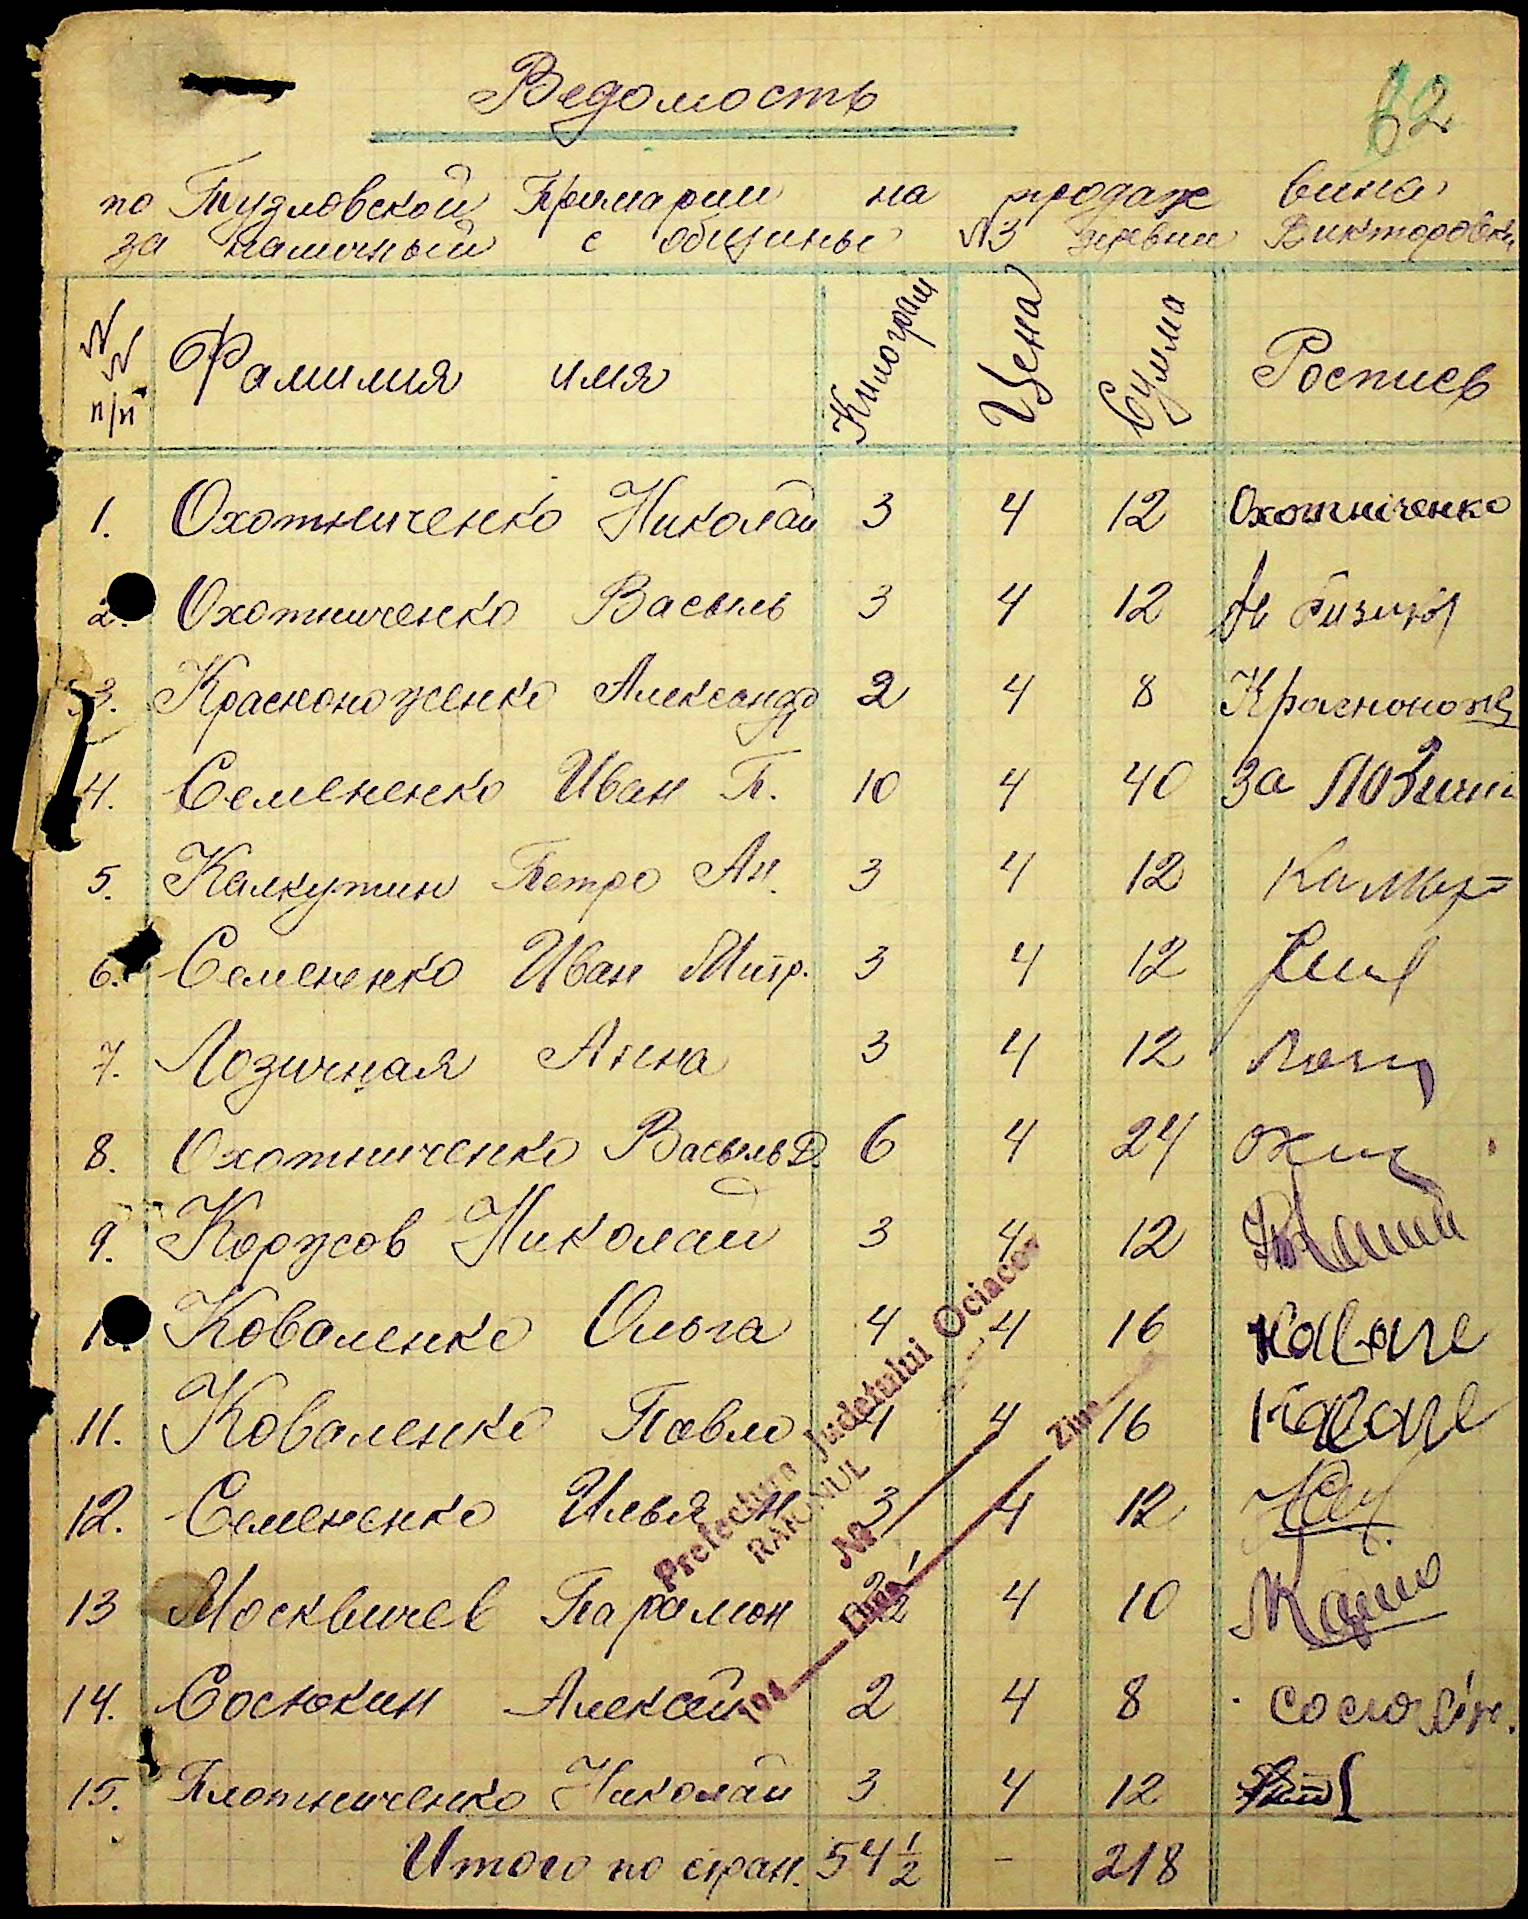 Ведомость
62
по Тузловской Примарии на продаж вина
за наличный с общины №3 деревни Викторовки
№№ п/п Фамилия имя Килограм Цена Сумма Роспись
1. Охотниченко Николай 3 4 12 Охотніченко
2. Охотниченко Васыль 3 4 12
3. Красноноженко Александр 2 4 8 Красноноже
4. Семененко Иван П. 10 4 40 За
5. Калкутин Петро Ан. 3 4 12
6. Семененко Иван Митр. 3 4 12
7. Лозичная Анна 3 4 12
8. Охотниченко Васыль Д. 6 4 24
9. Коржов Николай 3 4 12
10. Коваленко Ольга 4 4 16
11. Коваленко Павло 4 4 16
12. Семененко Илья Н 3 4 12
13 Москвичев Парамон 2 1/2 4 10
14. Сосюкин Алексей 2 4 8
15. Плотниченко Николай 3 4 12
Итого по стран. 54 1/2 - 218
Prefectura Judetului Ociacov
RAIONUL
№
194 Luna Ziua